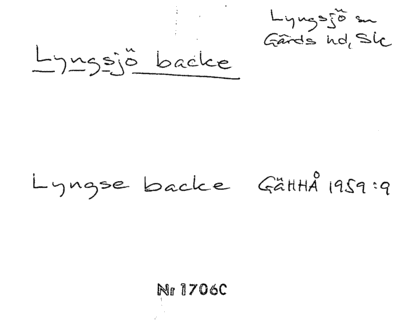 Lyngsjö sn
Gärds hd, Sk
Lyngsjö backe
Lyngse backe GäHHÅ 1959:9
Nr 1706C